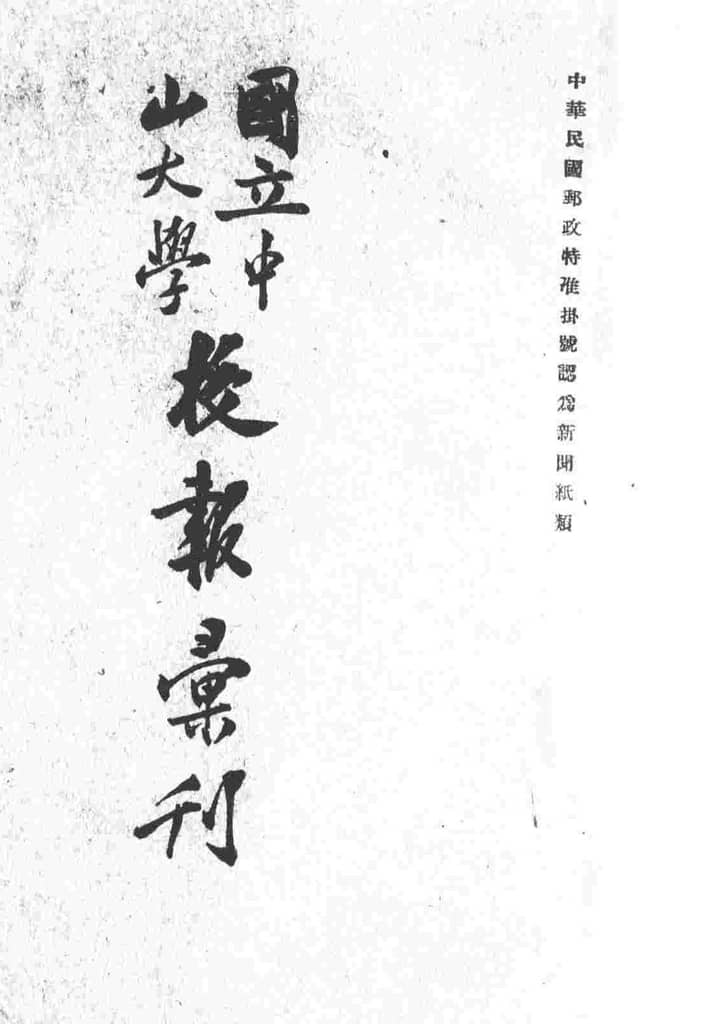 中華民國郵政特准掛號認爲新聞紙類
國立中
山大學
校報彙刊